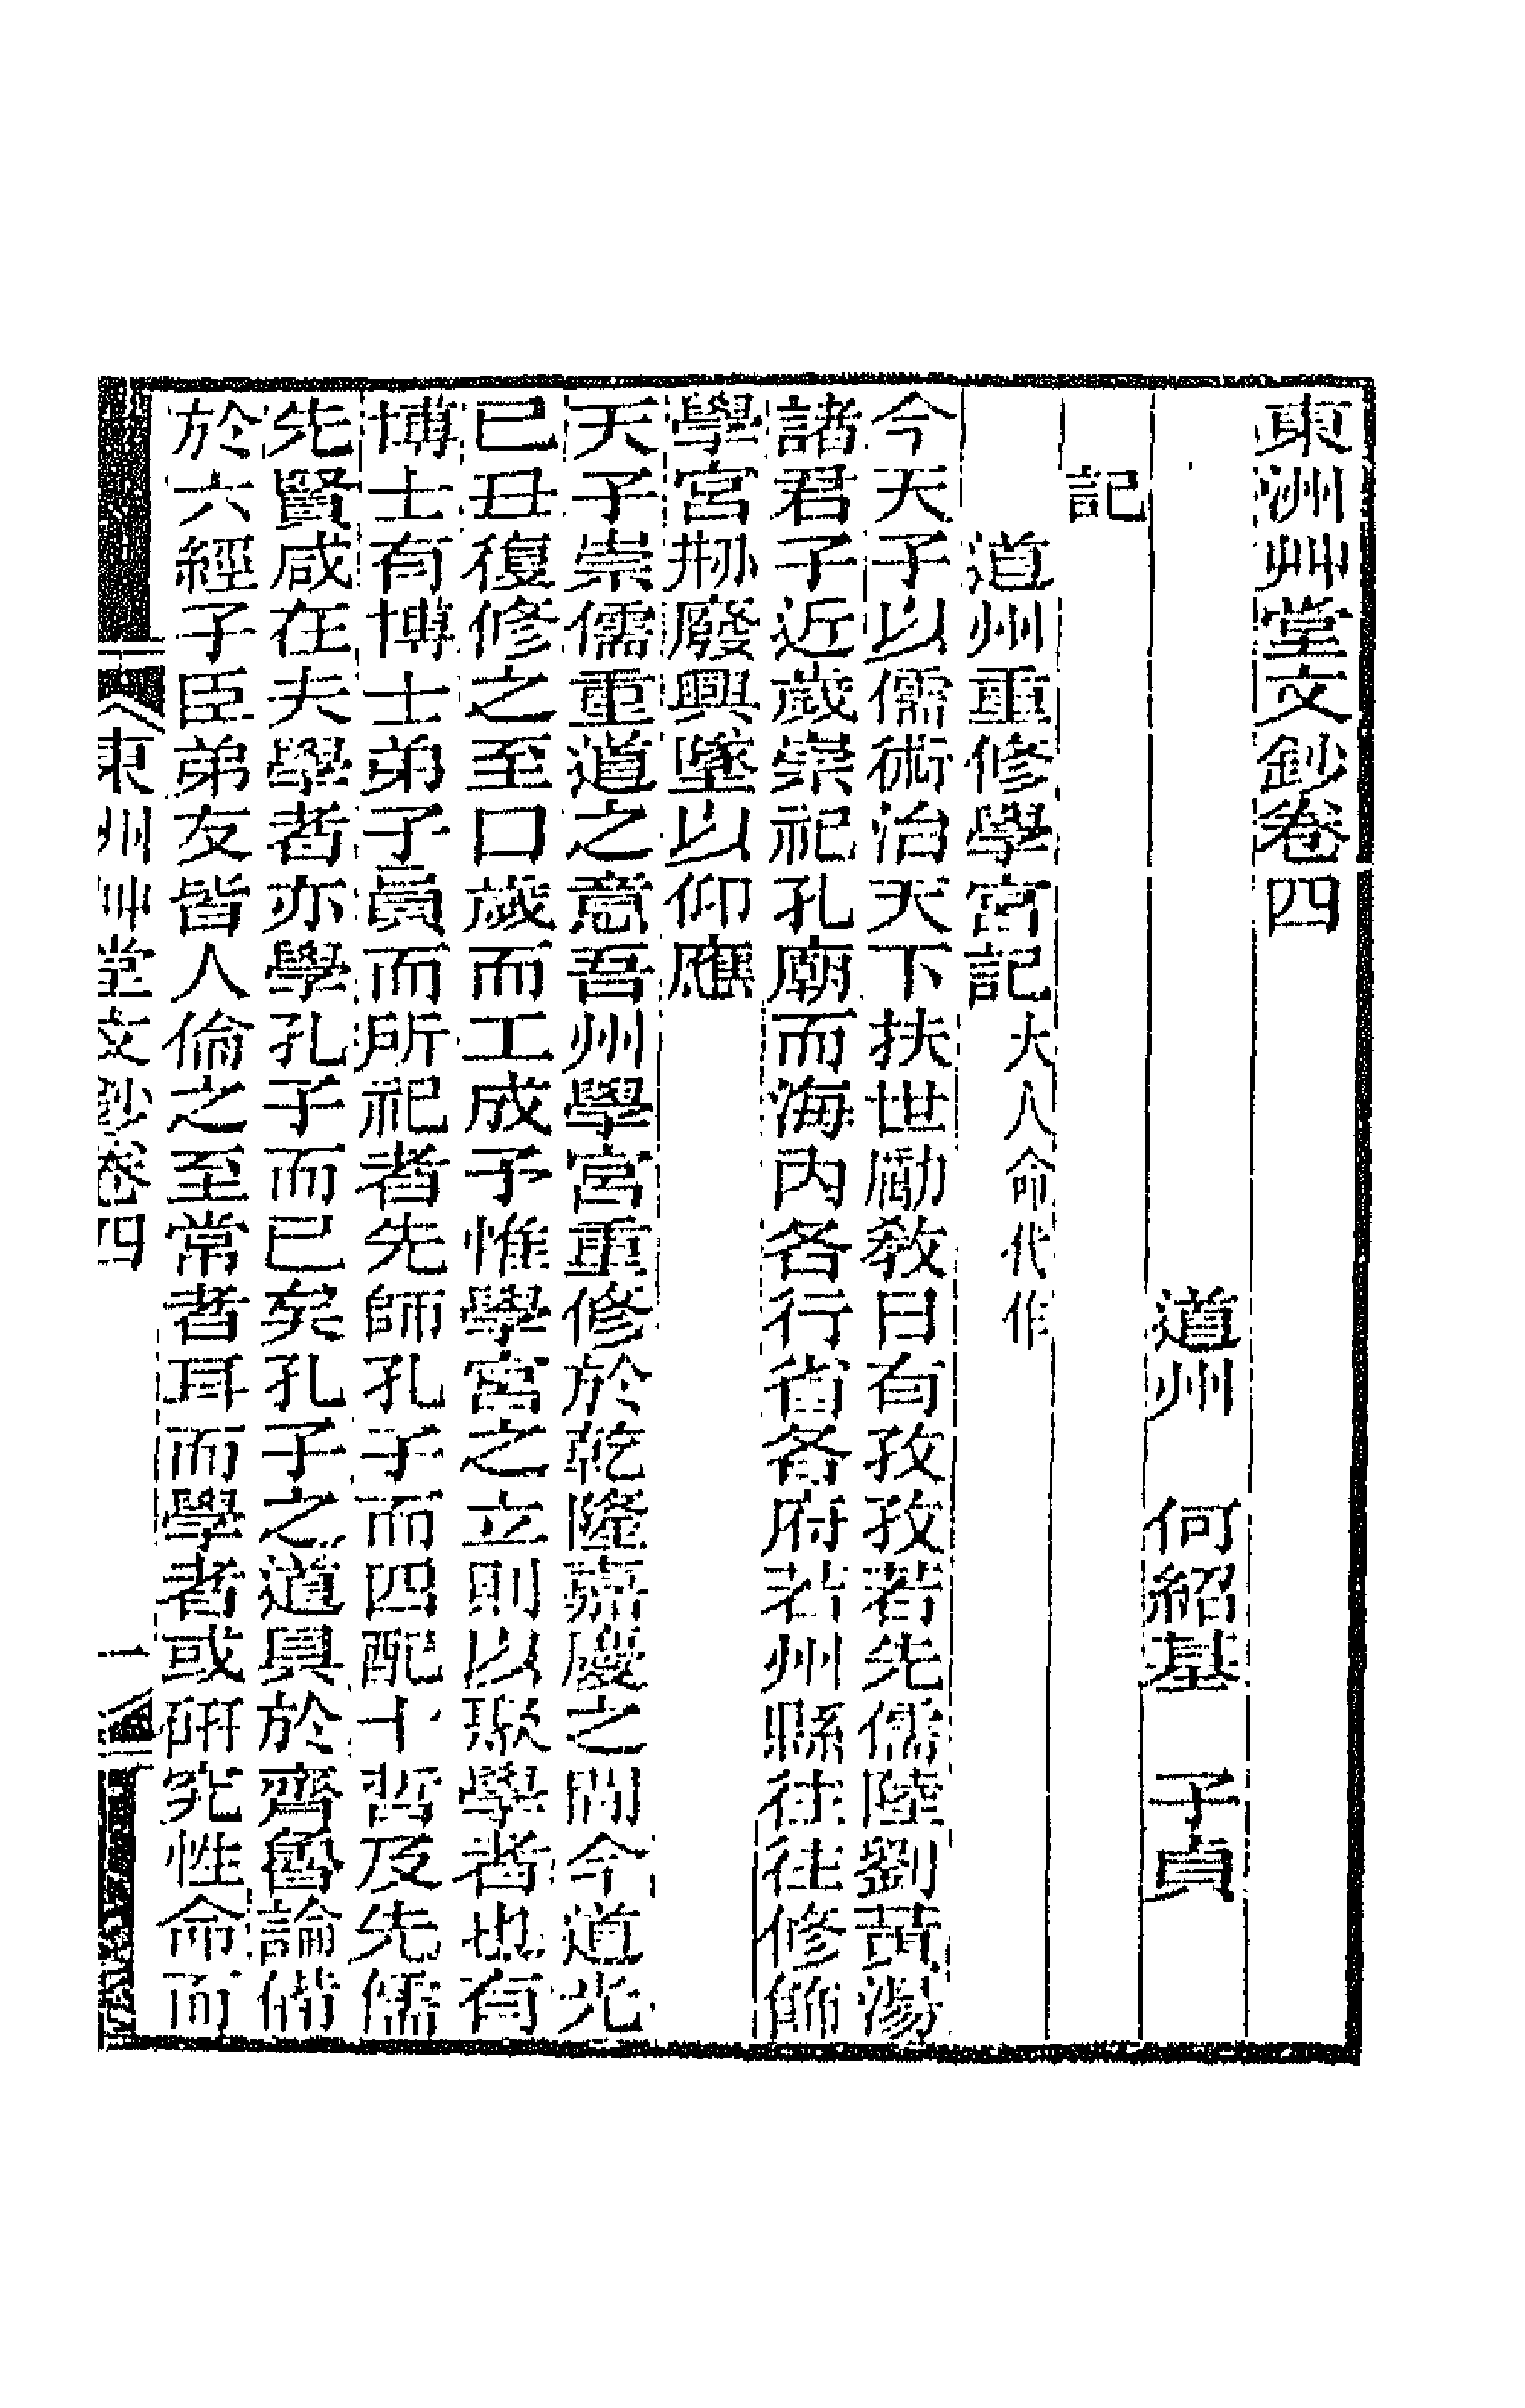 東洲艸堂文鈔卷四
道州 何紹基 子貞
記
道州重修學宮記大人命代作
今天子以儒術治天下扶世勵敎日有孜孜若先儒陸劉黃湯
諸君子近歲崇祀孔廟而海內各行省各府若州縣往往修飾
學宮刱廢興墜以仰應
天子崇儒重道之意吾州學宮重修於乾隆嘉慶之閒今道光
已丑復修之至口歲而工成予惟學宮之立則以聚學者也有
博士有博士弟子員而所祀者先師孔子而四配十哲及先儒
先賢咸在夫學者亦學孔子而已矣孔子之道具於齊魯論備
於六經子臣弟友皆人倫之至常者耳而學者或硏究性命而
東洲艸堂文鈔卷四
一